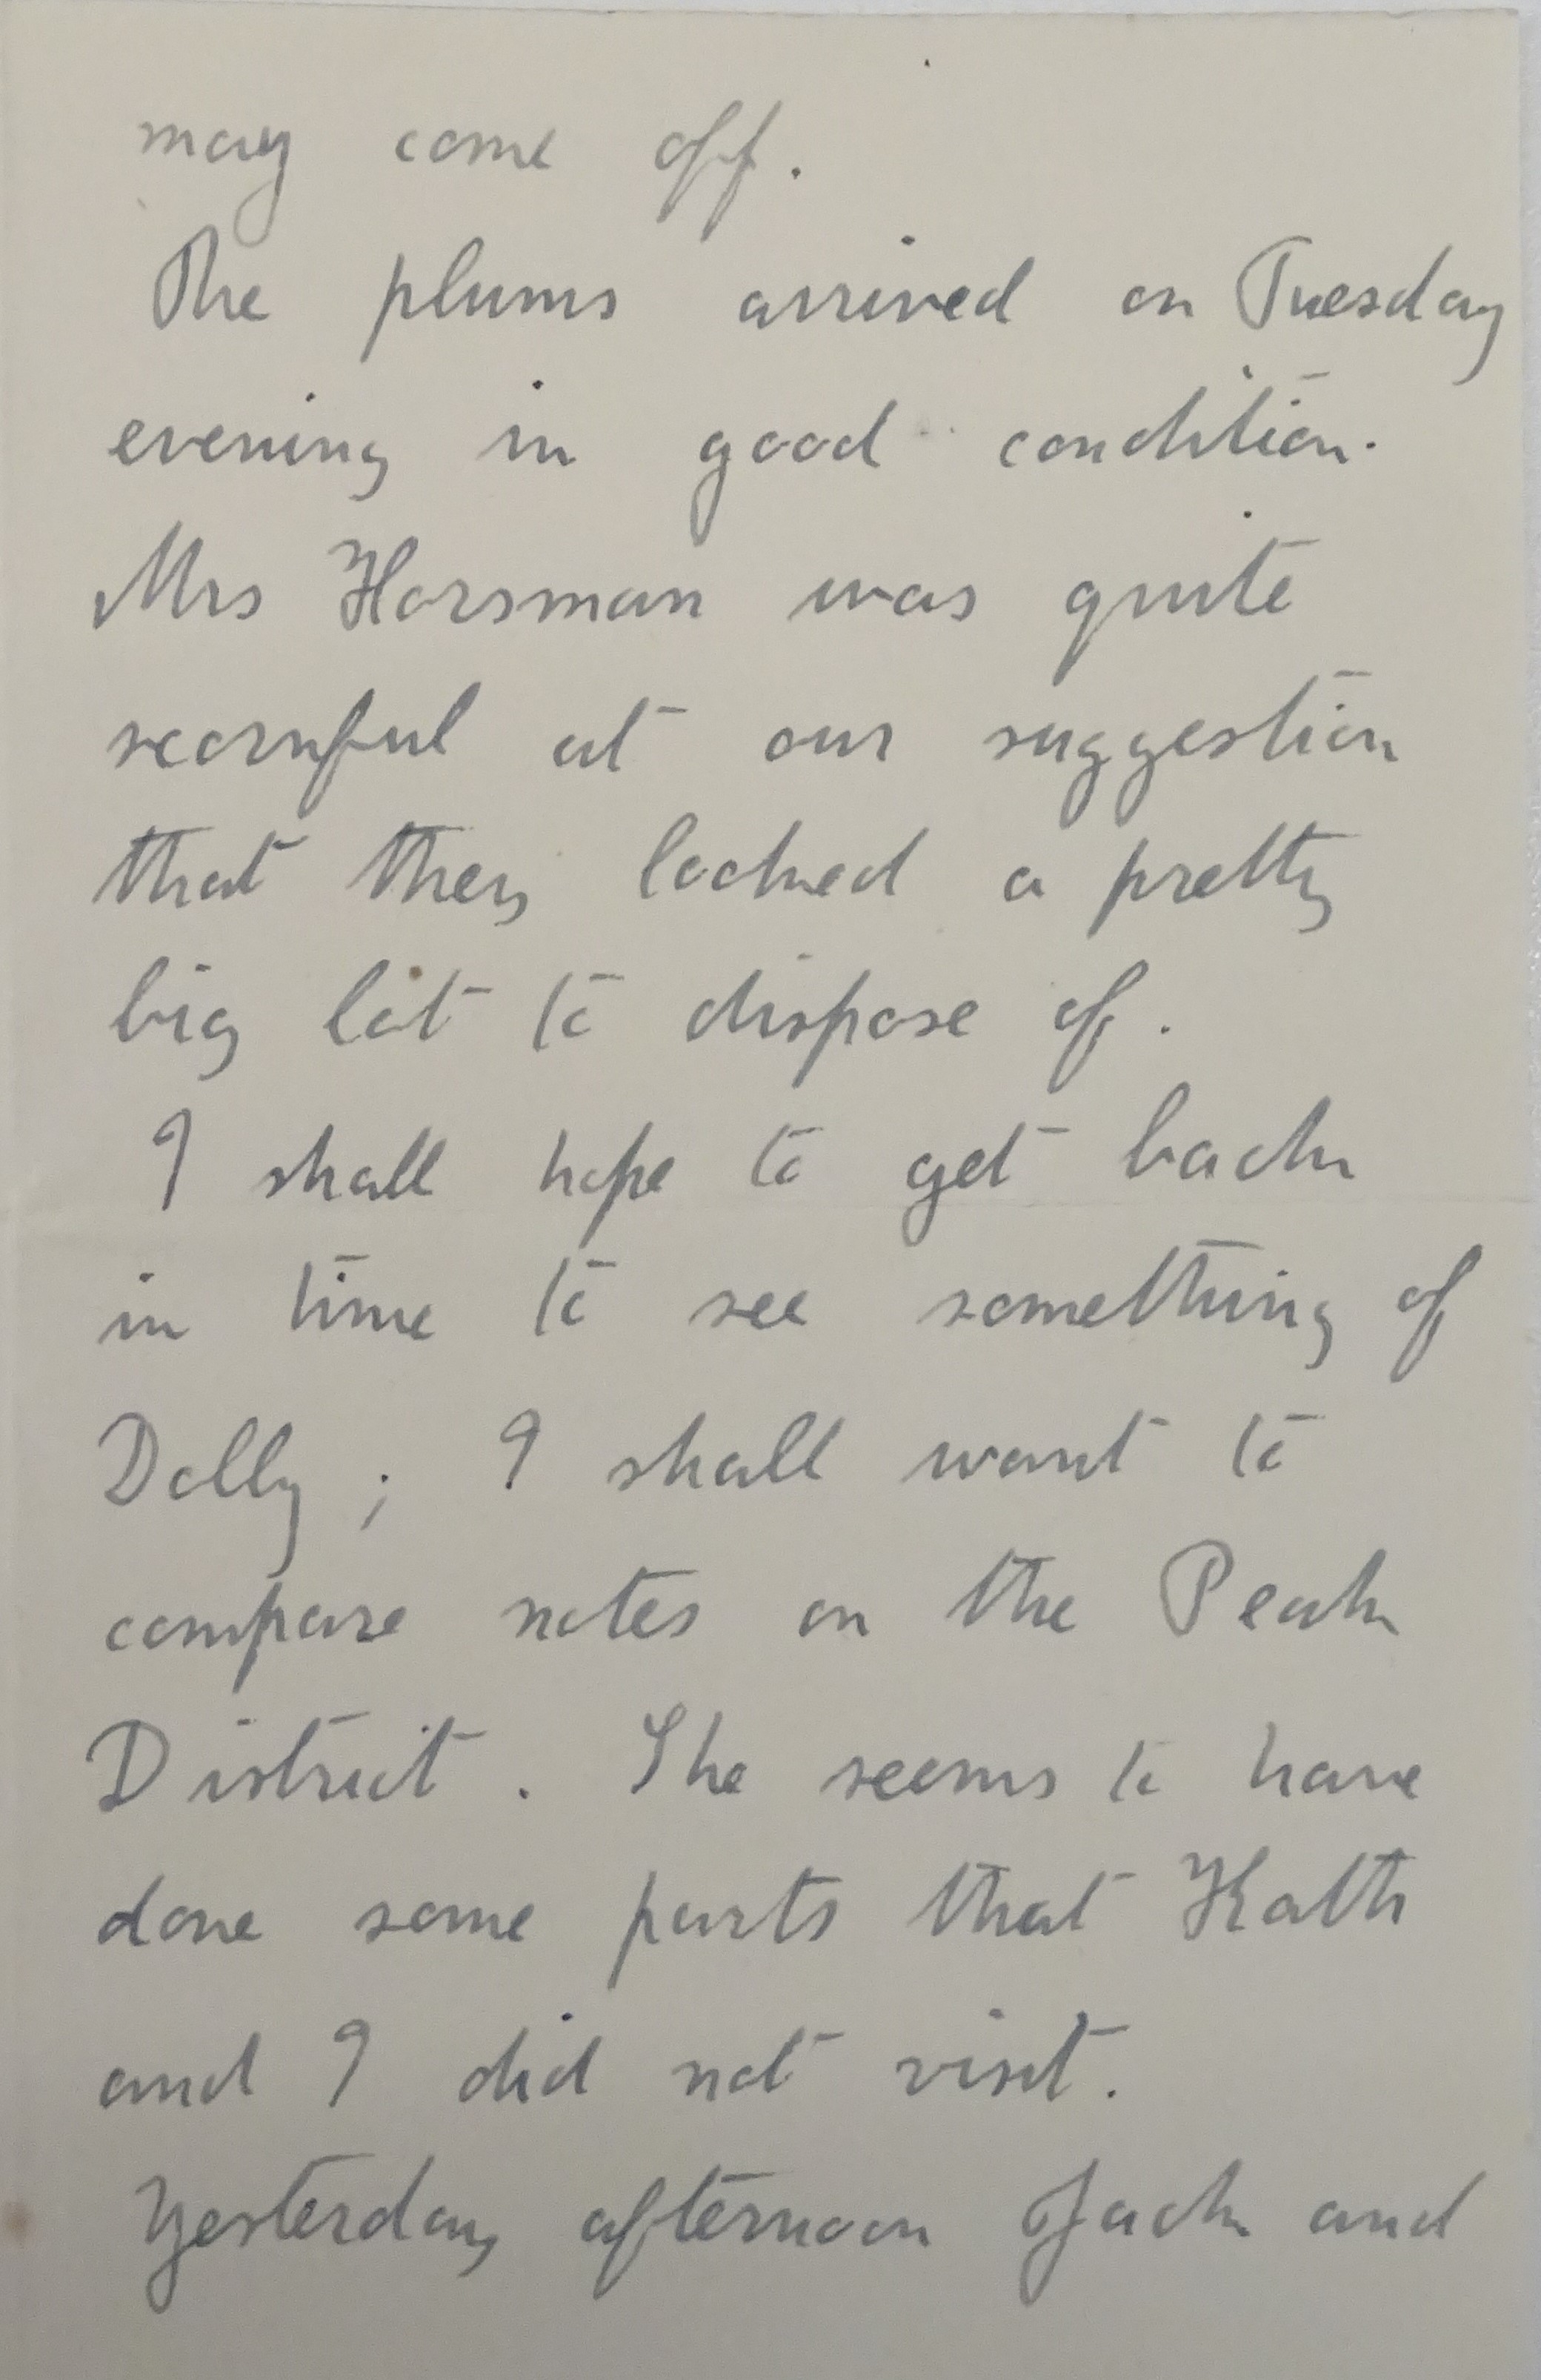 may come off.
The plums arrived on Tuesday
evening in good condition.
Mrs Horsman was quite
scornful at our suggestion
that they looked a pretty
big lot to dispose of.
I shall hope to get back
in time to see something of
Dolly; I shall want to
compare notes on the Peak
District. She seems to have
done some parts that Kath
and I did not visit.
Yesterday afternoon Jack and